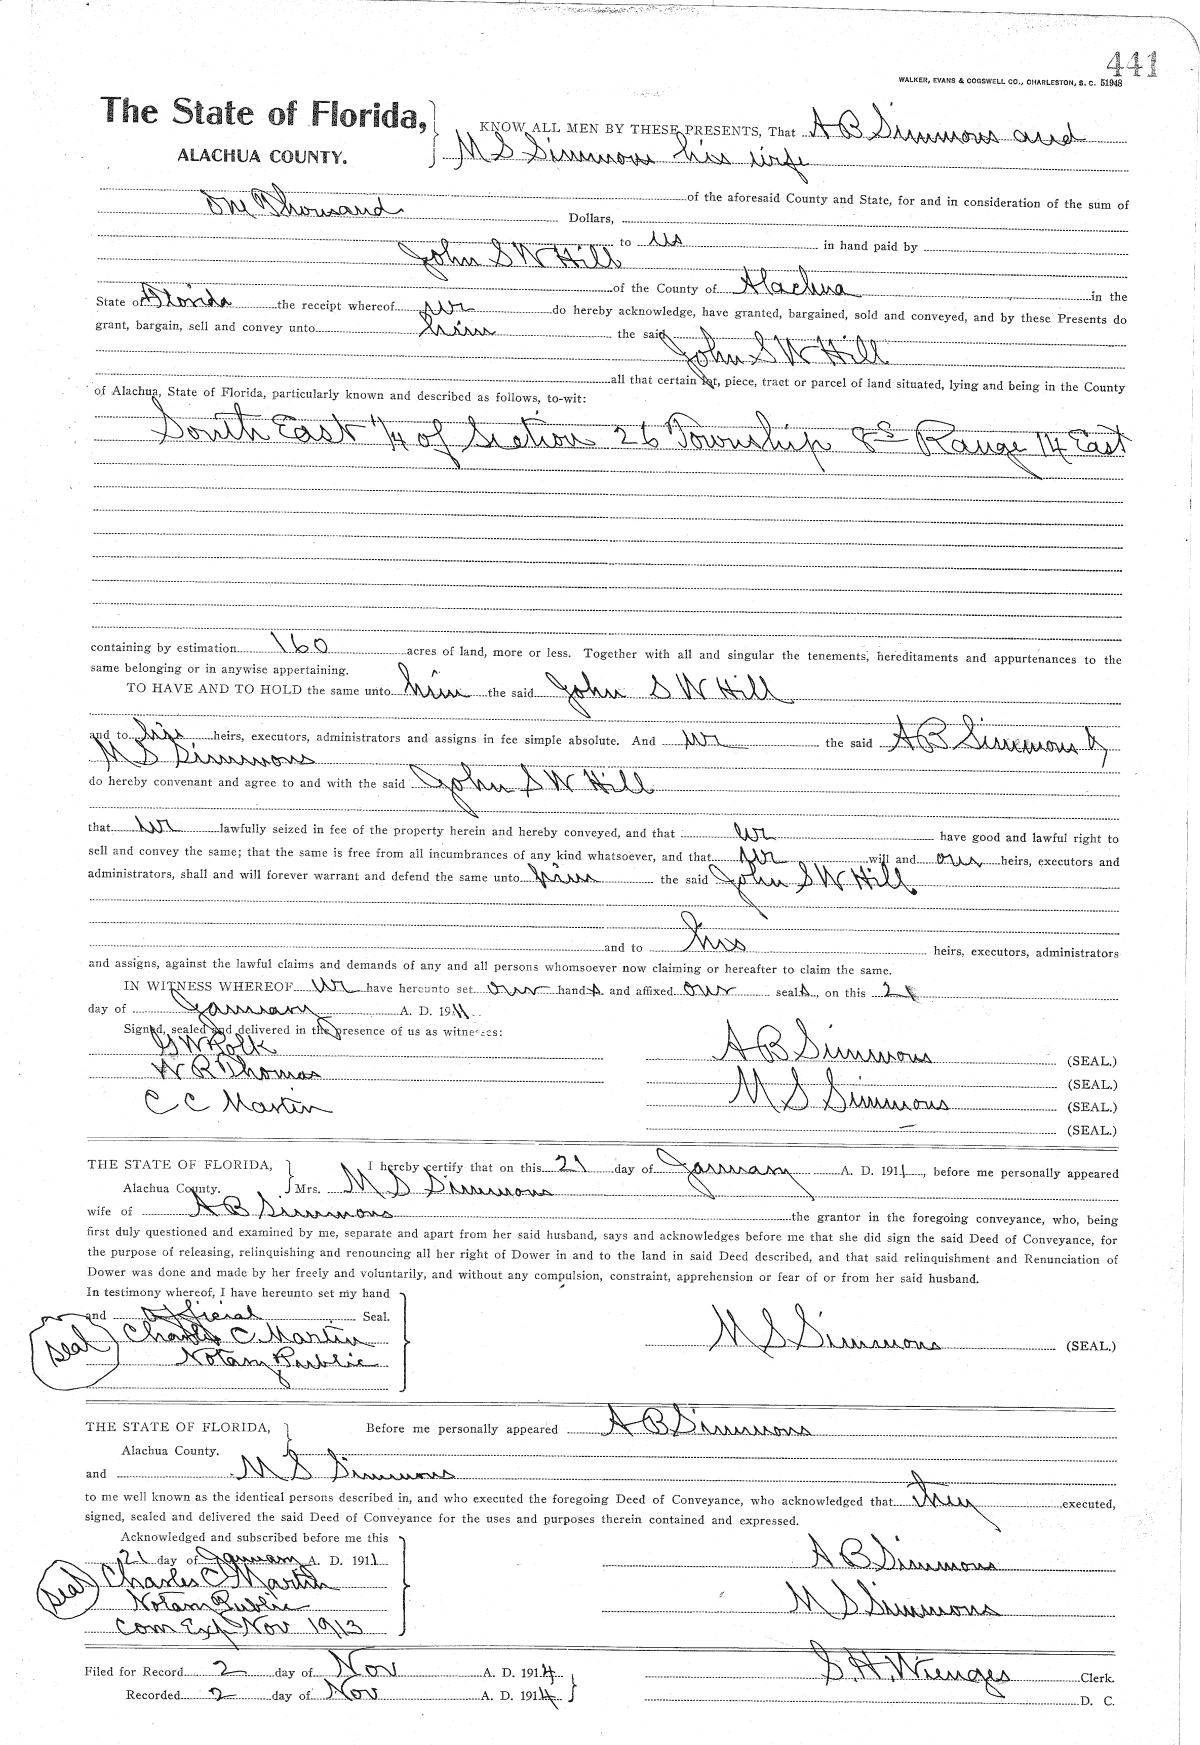 441
WALKER, EVANS & COGSWELL CO., CHARLESTON, S. C. 51948
The State of Florida,
ALACHUA COUNTY.
KNOW ALL MEN BY THESE PRESENTS, That A B Simmons and
M S Simmons his wife
of the aforesaid County and State, for and in consideration of the sum of
One Thousand Dollars,
to us in hand paid by
John S W Hill
of the County of Alachua in the
State of Florida the receipt whereof we do hereby acknowledge, have granted, bargained, sold and conveyed, and by these Presents do
grant, bargain, sell and convey unto him the said John S W Hill
all that certain lot, piece, tract or parcel of land situated, lying and being in the County
of Alachua, State of Florida, particularly known and described as follows, to-wit:
South East 1/4 of Section 26 Township 8 S Range 14 East
containing by estimation 160 acres of land, more or less. Together with all and singular the tenements, hereditaments and appurtenances to the
same belonging or in anywise appertaining.
TO HAVE AND TO HOLD the same unto him the said John S W Hill
and to his heirs, executors, administrators and assigns in fee simple absolute. And we the said A B Simmons &
M S Simmons
do hereby convenant and agree to and with the said John S W Hill
that we lawfully seized in fee of the property herein and hereby conveyed, and that we have good and lawful right to
sell and convey the same; that the same is free from all incumbrances of any kind whatsoever, and that we will and our heirs, executors and
administrators, shall and will forever warrant and defend the same unto him the said John S W Hill
and to his heirs, executors, administrators
and assigns, against the lawful claims and demands of any and all persons whomsoever now claiming or hereafter to claim the same.
IN WITNESS WHEREOF we have hereunto set our hands and affixed our seals, on this 21
day of January A. D. 1911.
Signed, sealed and delivered in the presence of us as witnesses:
G W Polk
W R Thomas
C C Martin
A B Simmons (SEAL.)
(SEAL.)
M S Simmons (SEAL.)
(SEAL.)
THE STATE OF FLORIDA,
Alachua County.
I hereby certify that on this 21 day of January A. D. 1911, before me personally appeared
Mrs. M S Simmons
wife of A B Simmons the grantor in the foregoing conveyance, who, being
first duly questioned and examined by me, separate and apart from her said husband, says and acknowledges before me that she did sign the said Deed of Conveyance, for
the purpose of releasing, relinquishing and renouncing all her right of Dower in and to the land in said Deed described, and that said relinquishment and Renunciation of
Dower was done and made by her freely and voluntarily, and without any compulsion, constraint, apprehension or fear of or from her said husband.
In testimony whereof, I have hereunto set my hand
and official Seal.
Seal
Charles C Martin
Notary Public
M S Simmons (SEAL.)
THE STATE OF FLORIDA,
Alachua County.
Before me personally appeared A B Simmons
and M S Simmons
to me well known as the identical persons described in, and who executed the foregoing Deed of Conveyance, who acknowledged that they executed,
signed, sealed and delivered the said Deed of Conveyance for the uses and purposes therein contained and expressed.
Acknowledged and subscribed before me this
21 day of January A. D. 1911
Seal
Charles C Martin
Notary Public
Com Exp Nov 1913
A B Simmons
M S Simmons
Filed for Record 2 day of Nov A. D. 1914
Recorded 2 day of Nov A. D. 1914
S. H. Wienges Clerk.
D. C.